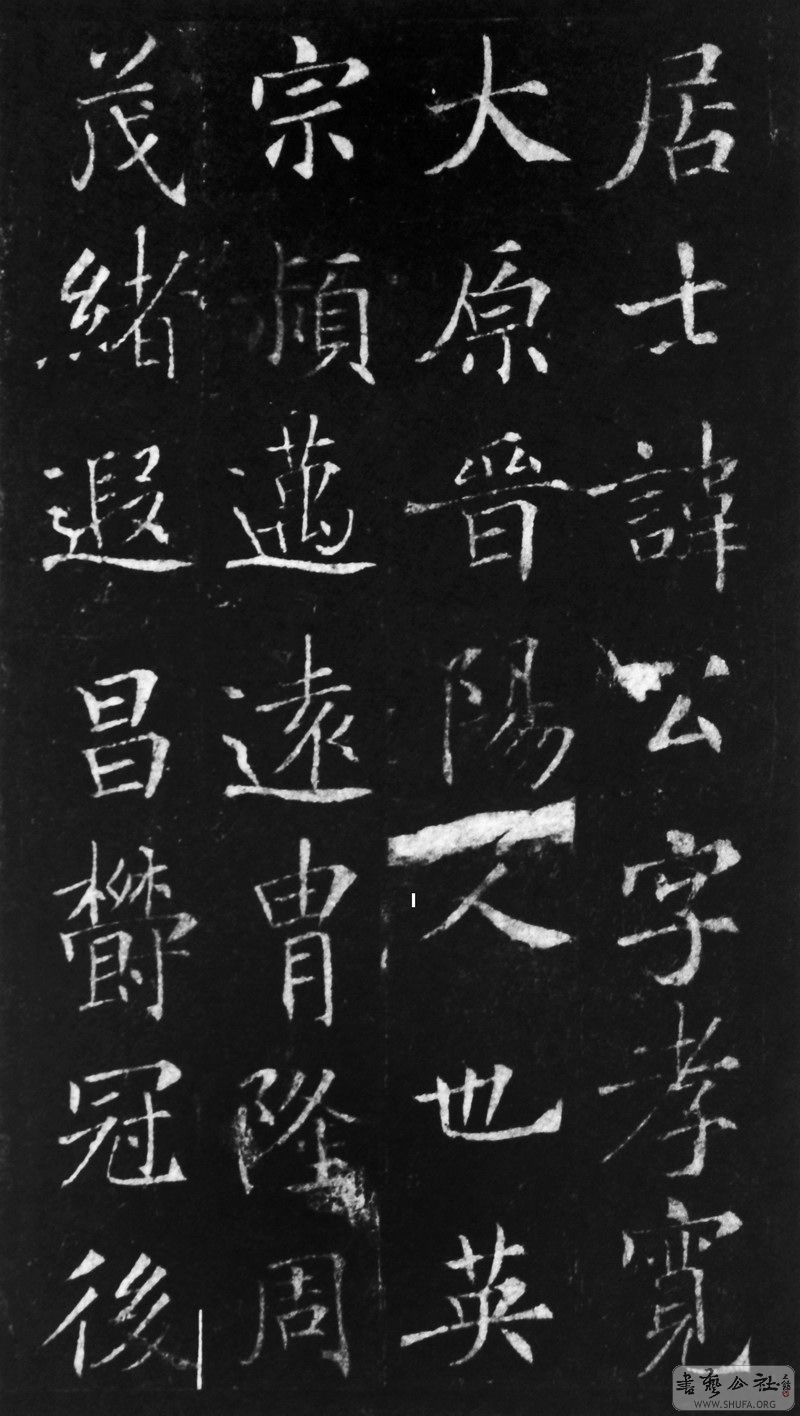 居士諱公字孝寬
大原晉陽人也英
宗頫邁遠冑隆周
茂緒遐昌欝冠後
書藝公社
WWW.SHUFA.ORG